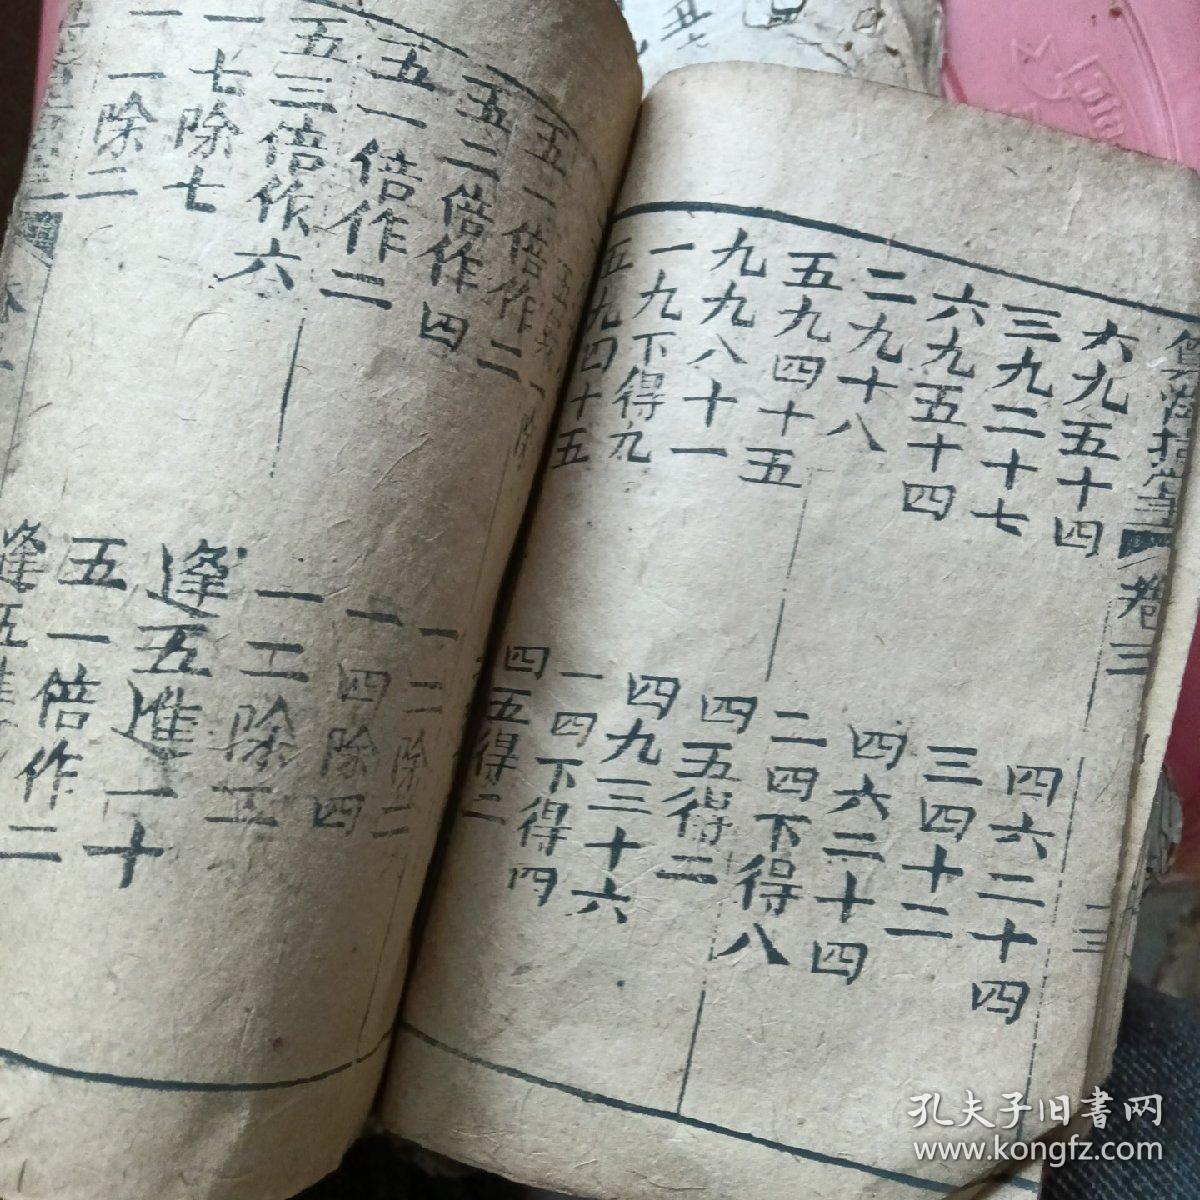 卷三
六九五十四
三九二十七
六九五十四
二九十八
五九四十五
九九八十一
一九下得九
五九四十五
四六二十四
三四十二
四六二十四
二四下得八
四五得二
四九三十六
一四下得四
四五得二
五一倍作二
五二倍作四
五一倍作二
五三倍作六
一七除七
一一除二
一二除二
一四除四
逢五進一十
五一倍作二
孔夫子旧書网
www.kongfz.com